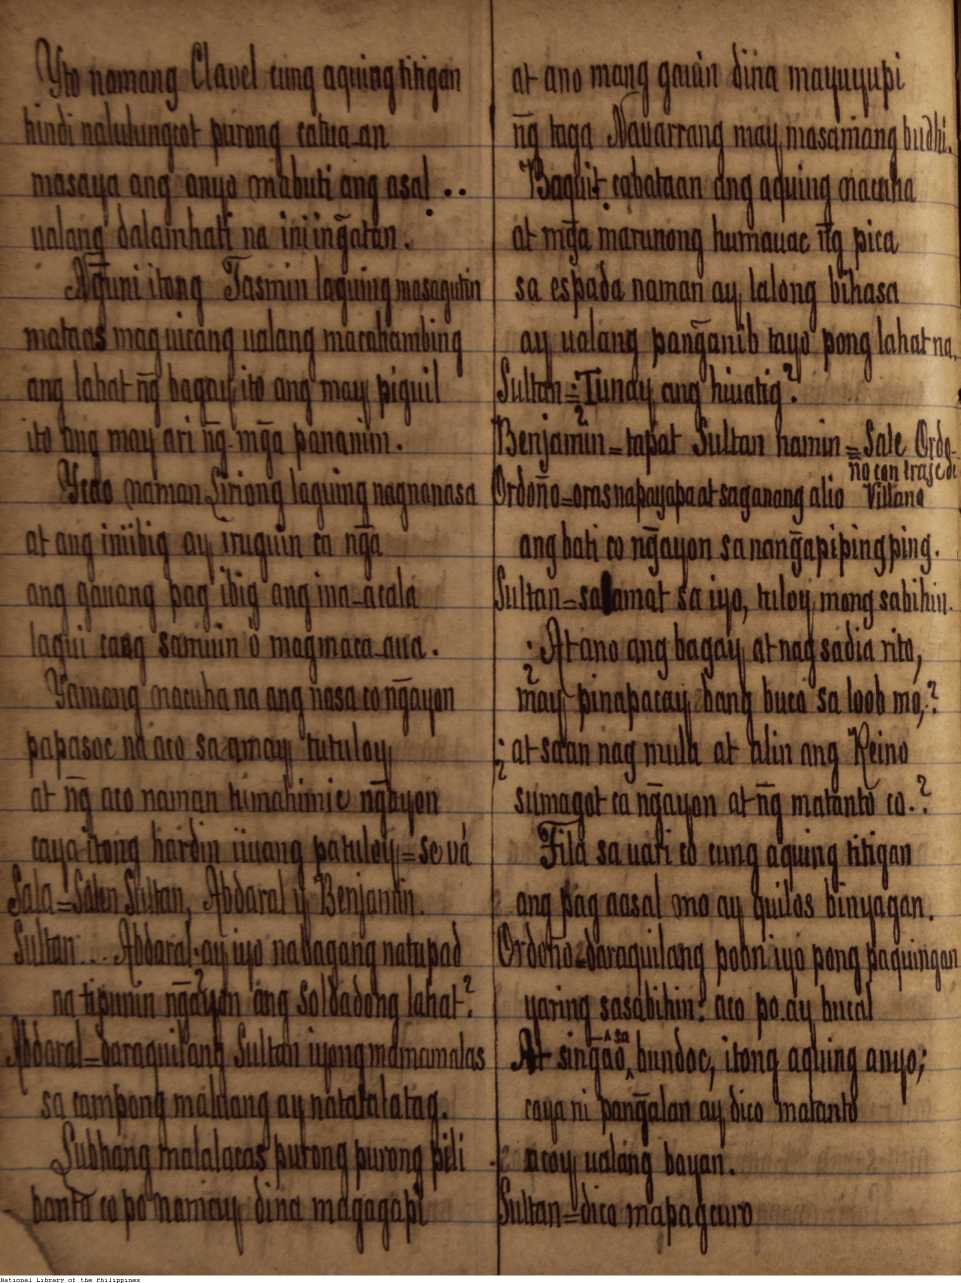 Yto namang Clavel cung aquing titigan
hindi nalulungcot purong catua-an
masaya ang anyo mabuti ang asal..
ualang dalamhati na iniiñgatan.
Ñguni itong Jasmin laguing masaguiin
mataas mag uicang ualang macahambing
ang lahat ñg bagay, ito ang may piguil
ito ang may ari ñg mg̃a pananim.
Ycao naman Liriong laguing nagnanasa
at ang iniibig ay iruguin ca ng̃a
ang gauang pag ibig ang ina-acala
lagui cang samuin o magmaca-aua.
Yamang nacuha na ang nasa co ng̃ayon
papasoc na aco sa amay tutuloy
at ñg aco naman tumahimic ng̃ayon
caya itong hardin iiuang patuloy = se vá
Sala = Salen Sultan, Abdaral y Benjamin.
Sultan... Abdaral ay iyo na bagang natupad
na tipunin ng̃ayon ang soldadong lahat?
Abdaral = daraquilang Sultan iyong mamamalas
sa campong malalang ay natatalatag.
Subhang malalacas purong purong pili
banta co po namay dina magagapi
at ano mang gauin dina mayuyupi
ñg taga Navarrang may masamang budhi.
Baguit cabataan ang aquing nacuha
at mg̃a marunong humauac ñg pica
sa espada naman ay lalong bihasa
ay ualang pang̃anib tayo pong lahat na.
Sultan = Tunay ang hiuatig?
Benjamin = tapat Sultan namin = Sale Ordo-
ño con traje de
Villano
Ordoño = oras na payapa at saganang alio
ang bati co ng̃ayon sa nang̃apipingping.
Sultan = salamat sa iyo, tuloy mong sabihin.
¿At ano ang bagay at nag sadia rito,
¿may pinapacay bang buco sa loob mo,?
¿at saan nag mula at alin ang Reino
sumagot ca ng̃ayon at ñg matanto co.?
Tila sa uari co cung aquing titigan
ang pag aasal mo ay quilos binyagan.
Ordoño = daraquilang poon iyo pong paquingan
yaring sasabihin: aco po.ay bucal
At sing̃ao sa bundoc, itong aquing anyo;
caya ni pang̃alan ay dico matanto
acoy ualang bayan.
Sultan = dico mapagcuro
National Library of the Philippines